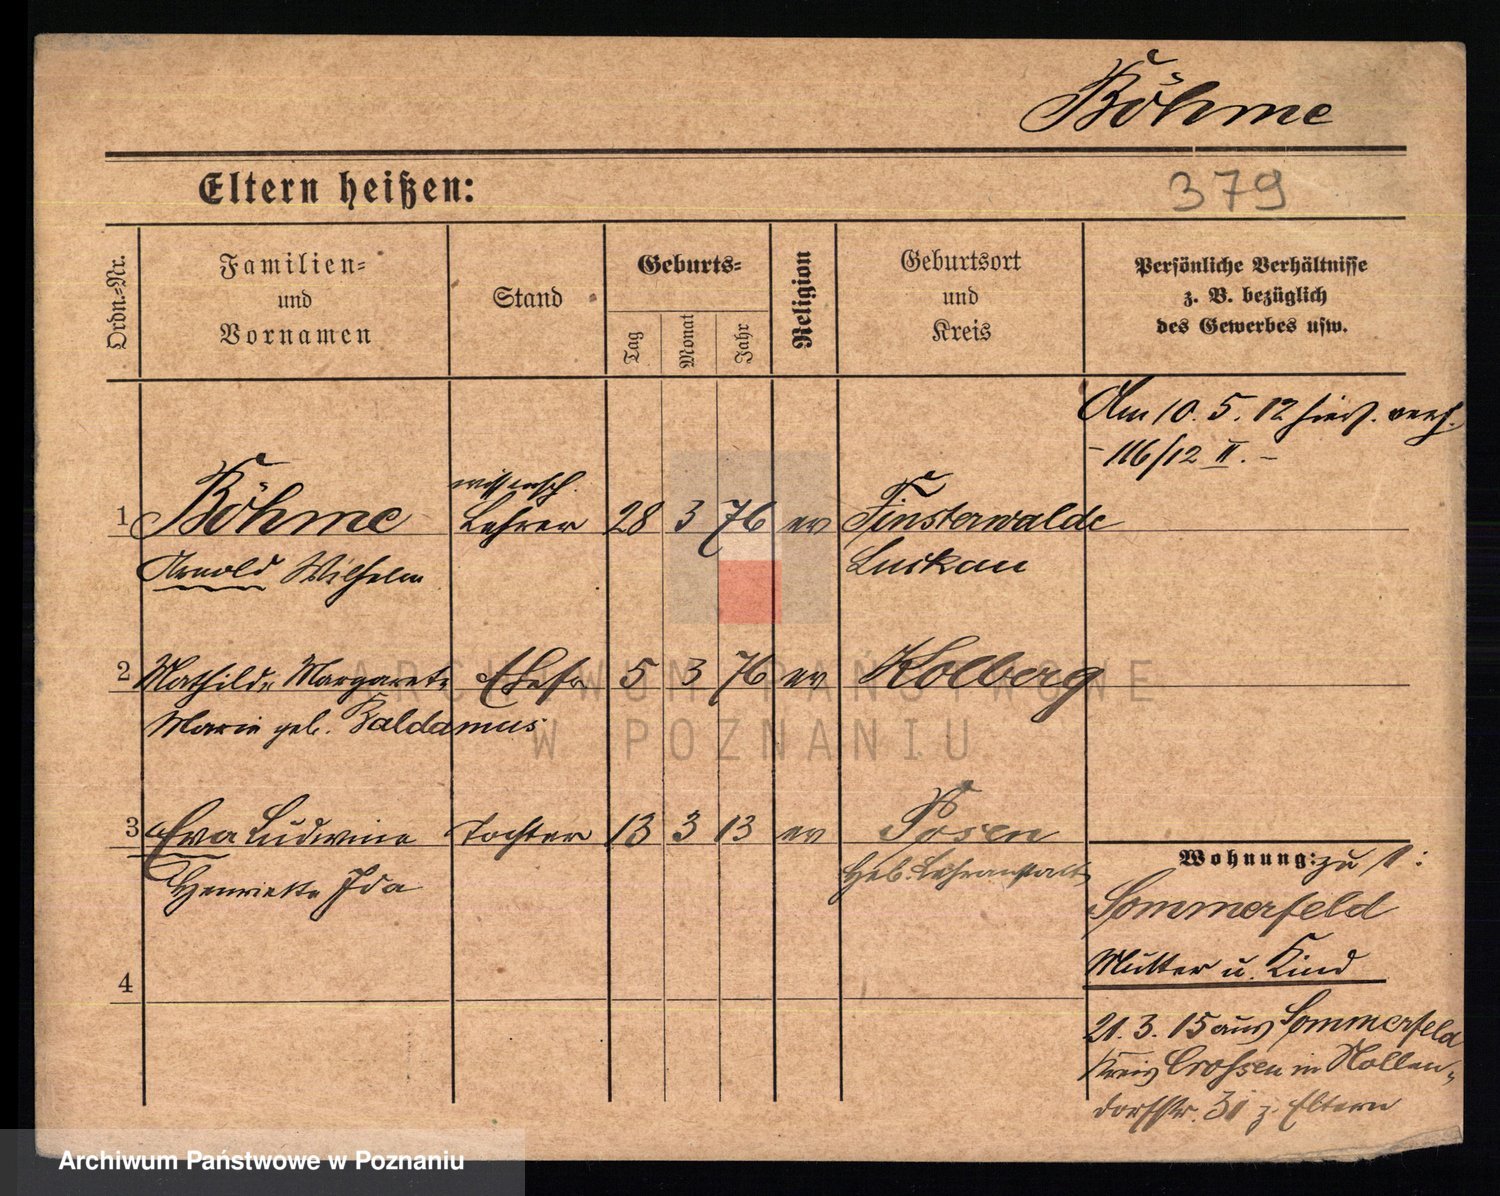 Böhme
Eltern heißen:
379
Ordn.-Nr.
Familien-
und
Vornamen
Stand
Geburts-
Tag
Monat
Jahr
Religion
Geburtsort
und
Kreis
Persönliche Verhältnisse
z. B. bezüglich
des Gewerbes usw.
Am 10. 5. 12 hier verh.
- 116/12 II. -
wissensch.
1 Böhme Lehrer 28 3 76 ev Finsterwalde
Arnold Wilhelm Luckau
2 Mathilde Margarete Ehefr 5 3 76 ev Kolberg
Marie geb. Baldamus
3 Eva Ludwine Tochter 13 3 13 ev Posen
Henriette Ida Heb. Lehranstalt
4
Wohnung: zu 1:
Sommerfeld
Mutter u. Kind
21. 3. 15 aus Sommerfeld
Kreis Crossen in Nollen-
dorfstr. 31 z. Eltern
ARCHIWUM PAŃSTWOWE
W POZNANIU
Archiwum Państwowe w Poznaniu